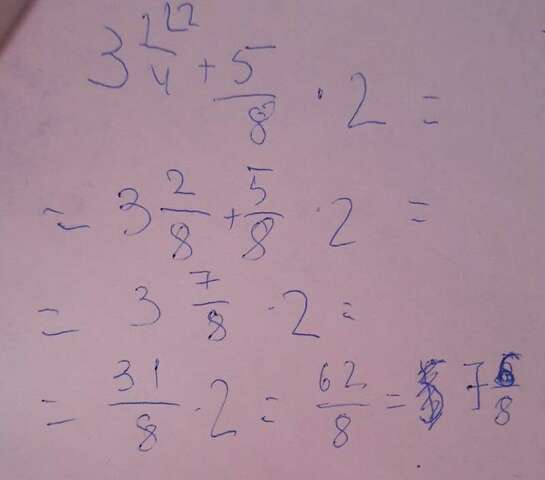 3 1/4 + 5/8 · 2 =
= 3 2/8 + 5/8 · 2 =
= 3 7/8 · 2 =
= 31/8 · 2 = 62/8 = 7 6/8